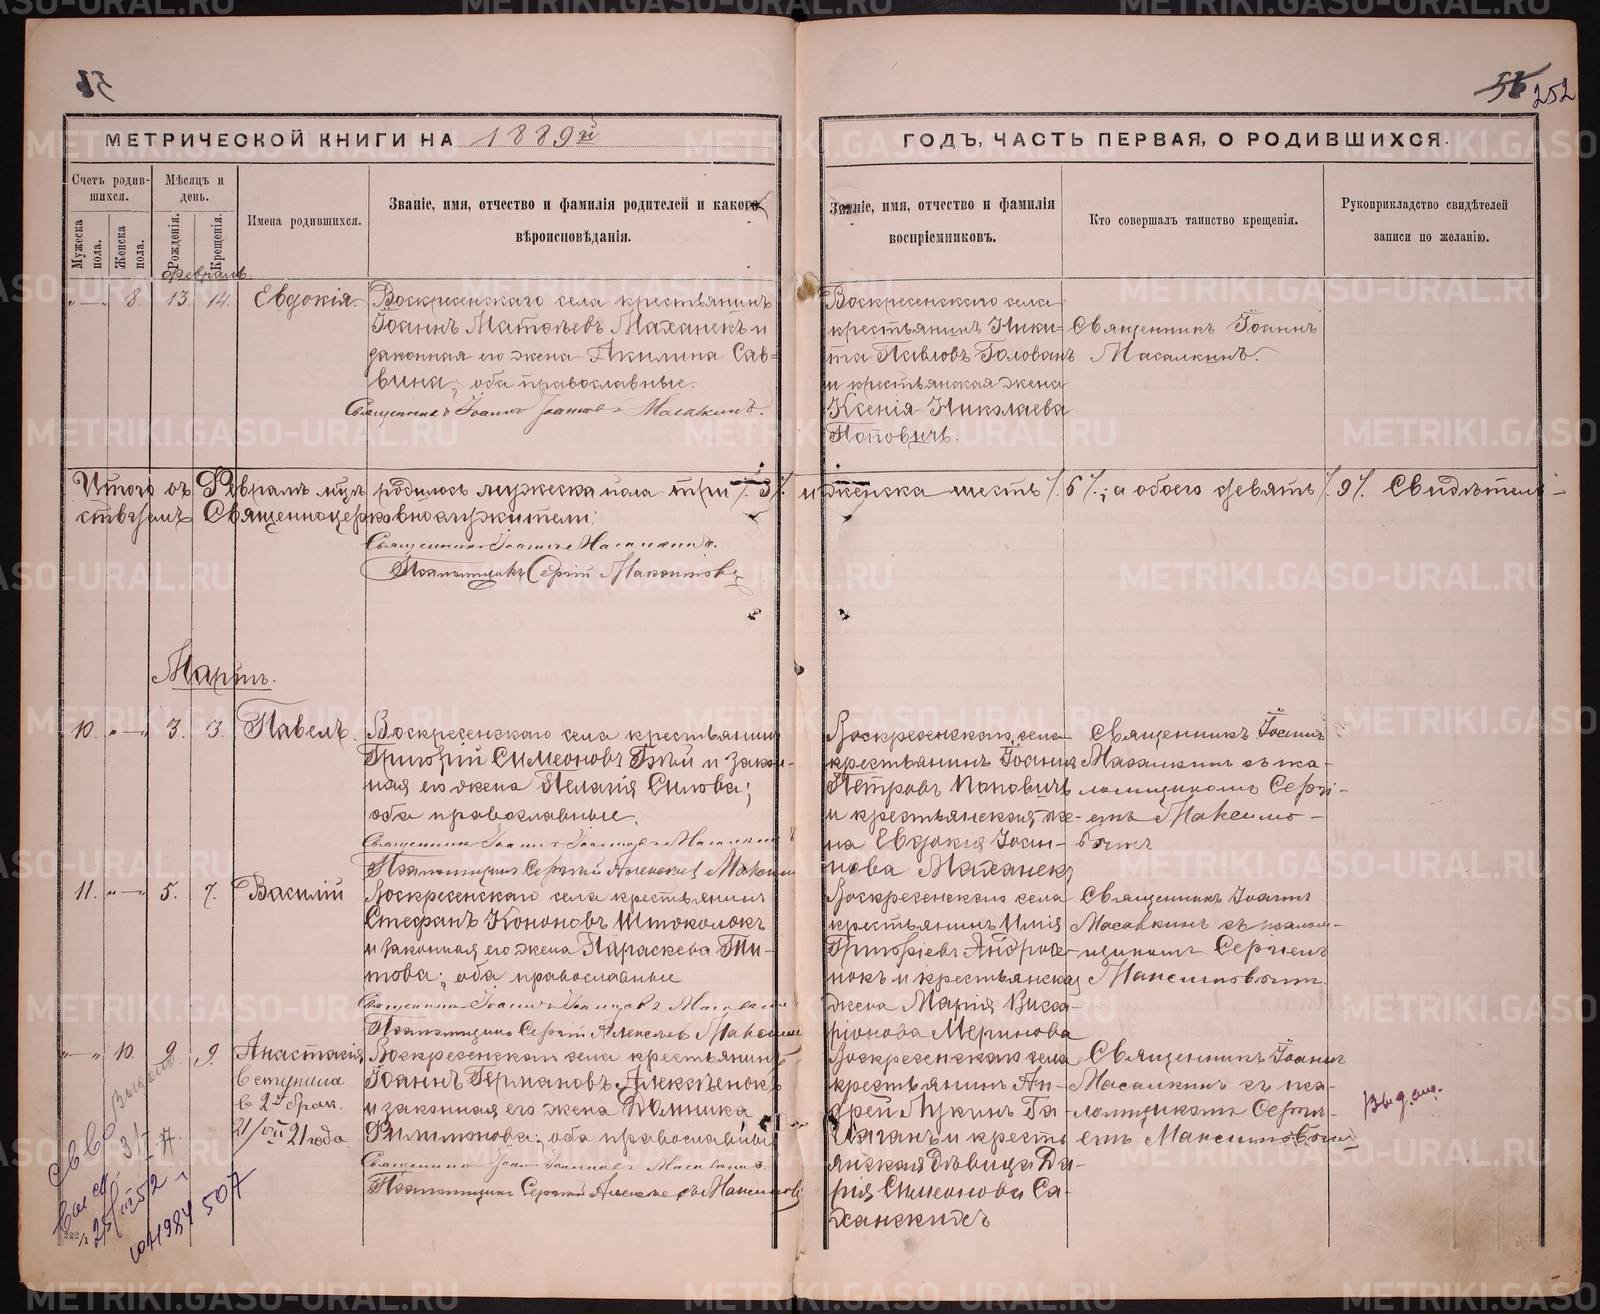 252
МЕТРИЧЕСКОЙ КНИГИ НА 1889й
ГОДЪ, ЧАСТЬ ПЕРВАЯ, О РОДИВШИХСЯ.
Счетъ родив-
шихся.
Мужеска
пола.
Женска
пола.
Мѣсяцъ и
день.
Рожденія.
Крещенія.
Имена родившихся.
Званіе, имя, отчество и фамилія родителей и какого
вѣроисповѣданія.
Званіе, имя, отчество и фамилія
воспріемниковъ.
Кто совершалъ таинство крещенія.
Рукоприкладство свидѣтелей
записи по желанію.
Февраль.
8. 13. 14. Евдокія.
Воскресенскаго села крестьянинъ
Іоаннъ Матѳѣевъ Маханекъ и
законная его жена Акилина Сав-
вина, оба православные.
Священникъ Іоаннъ Іоанновъ Масалкинъ.
Воскресенскаго села
крестьянинъ Ники-
та Павловъ Голованъ
и крестьянская жена
Ксенія Николаева
Поповичъ.
Священникъ Іоаннъ
Масалкинъ.
Итого въ Февралѣ мцѣ родилось мужеска пола три /.3/. и женска шесть /.6/.; а обоего девять /.9/. Свидѣтель-
ствуемъ Священноцерковнослужители:
Священникъ Іоаннъ Масалкинъ.
Псаломщикъ Сергій Максимовъ
Мартъ.
10. 3. 3. Павелъ.
Воскресенскаго села крестьянинъ
Григорій Симеоновъ Бѣй и закон-
ная его жена Пелагія Силова;
оба православные.
Священникъ Іоаннъ Іоанновъ Масалкинъ
Псаломщикъ Сергій Алексѣевъ
Воскресенскаго села
крестьянинъ Іоаннъ
Петровъ Поповичъ
и крестьянская же-
на Евдокія Іоан-
нова Маханекъ
Священникъ Іоаннъ
Масалкинъ съ пса-
ломщикомъ Сергі-
емъ Максимо-
вымъ
11. 5. 7. Василій
Воскресенскаго села крестьянинъ
Стефанъ Кононовъ Штоколокъ
и законная его жена Параскева Ти-
това; оба православные
Священникъ Іоаннъ Іоанновъ Масалкинъ
Псаломщикъ Сергій Алексѣевъ
Воскресенскаго села
крестьянинъ Илія
Григорьевъ Андрос-
нокъ и крестьянская
жена Марія Висса-
ріонова Меринова
Священникъ Іоаннъ
Масалкинъ съ псалом-
щикомъ Сергіемъ
Максимовымъ.
10. 9. 9. Анастасія
Вступила
в 2й брак.
21/VII 21 года
Воскресенскаго села крестьянинъ
Іоаннъ Германовъ Алексѣенокъ
и законная его жена Домника
Филимонова; оба православные
Священникъ Іоаннъ Іоанновъ Масалкинъ
Псаломщикъ Сергій Алексѣевъ Максимовъ
Воскресенскаго села
крестьянинъ Ан-
дрей Лукинъ Га-
и кресть-
янская дѣвица Да-
рія Симеонова Са-
ханскихъ
Священникъ Іоаннъ
Масалкинъ съ пса-
ломщикомъ Сергі-
емъ Максимовымъ
METRIKI.GASO-URAL.RU